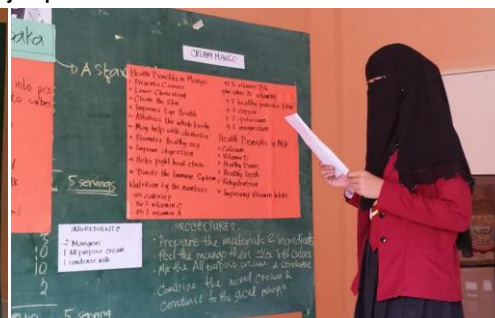 aka
A star
into pcs
to cubes
5 servings
CREAMY MANGO
Health Benefits in Mango
Prevents Cancer
Lower Cholesterol
Clears the Skin
Improves Eye Health
Alkalizes the whole body
May help with diabetes
Promotes healthy sex
Improve digestion
Helps fight heat stroke
Boosts the Immune System
Nutrition by the numbers
105 calories
76% vitamin C
25% vitamin A
11% vitamin B6
plus other B vitamins
9% healthy probiotic fiber
9% copper
7% potassium
4% magnesium
Health Benefits in Milk
Calcium
Vitamin D
Healthy Bones
Healthy teeth
Rehydration
Improving Vitamin intake
INGREDIENTS:
2 Mangoes
1 All purpose cream
1 condense milk
PROCEDURES:
- Prepare the materials & ingredients
- Peel the mango then slice into cubes
- Mix the All purpose cream & condense
- Combine the mixed cream &
condense to the sliced mango
5
10
10
5 serving